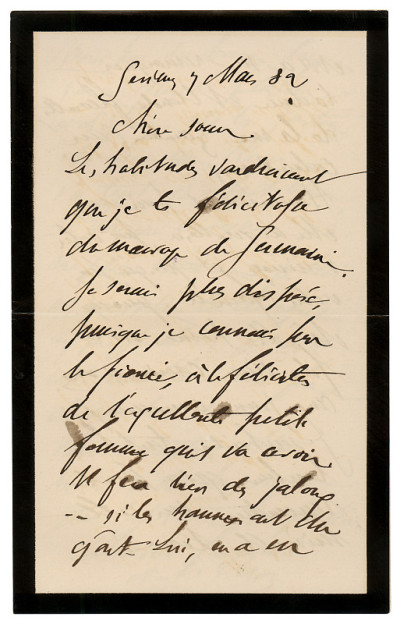 7 Mars 82
Chère sœur.
Les habitudes voudraient
que je te félicitasse
du mariage de Germaine.
Je serais plus disposé,
puisque je connais peu
le fiancé, à le féliciter
de l'excellente petite
femme qu'il va avoir.
Il fera bien des jaloux
-- si les hommes ont du
goût. Lui, en a eu